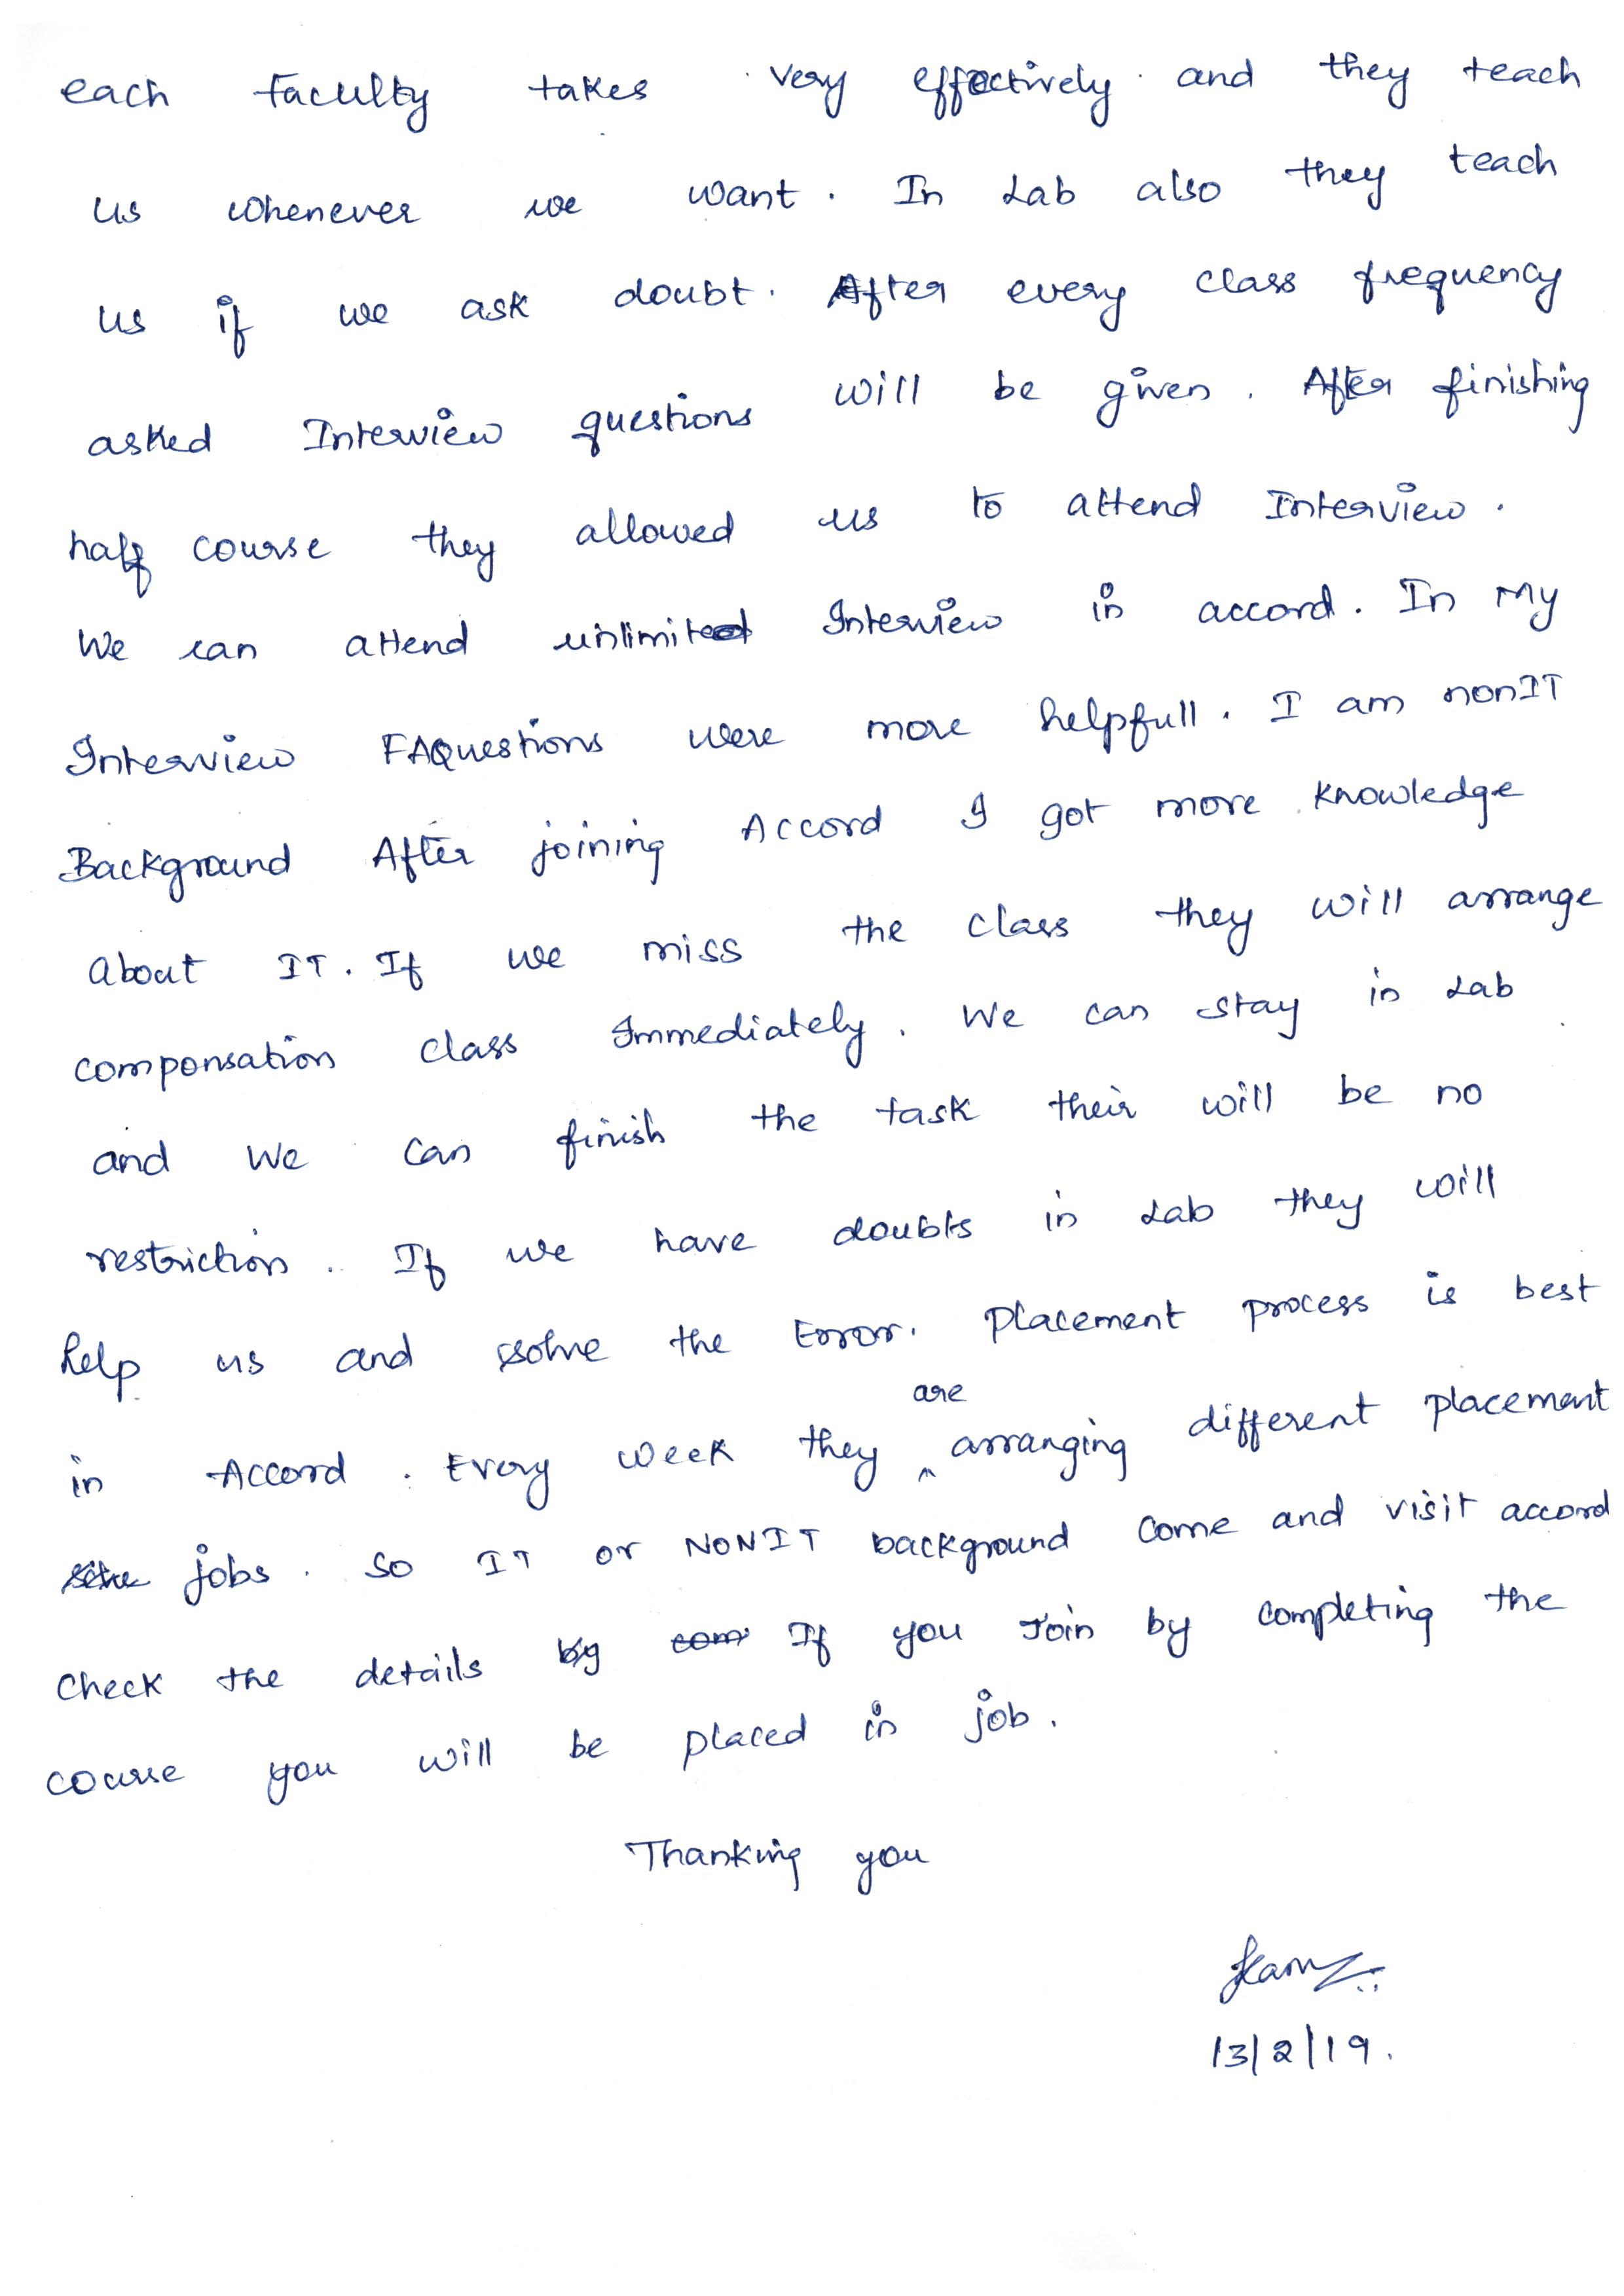 each faculty takes very effectively and they teach
us whenever we want. In Lab also they teach
us if we ask doubt. After every class frequency
asked Interview questions will be given. After finishing
half course they allowed us to attend Interview.
We can attend unlimited Interview in accord. In My
Interview FAQuestions were more helpfull. I am nonIT
Background After joining Accord I got more knowledge
About IT. If we miss the class they will arrange
compensation class Immediately. We can stay in Lab
and we can finish the task their will be no
restriction. If we have doubts in Lab they will
help us and solve the Error. Placement process is best
in Accord. Every week they are arranging different placement
jobs. So IT or NONIT background Come and visit accord
Check the details If you Join by completing the
course you will be placed in job.
Thanking you
13/2/19.